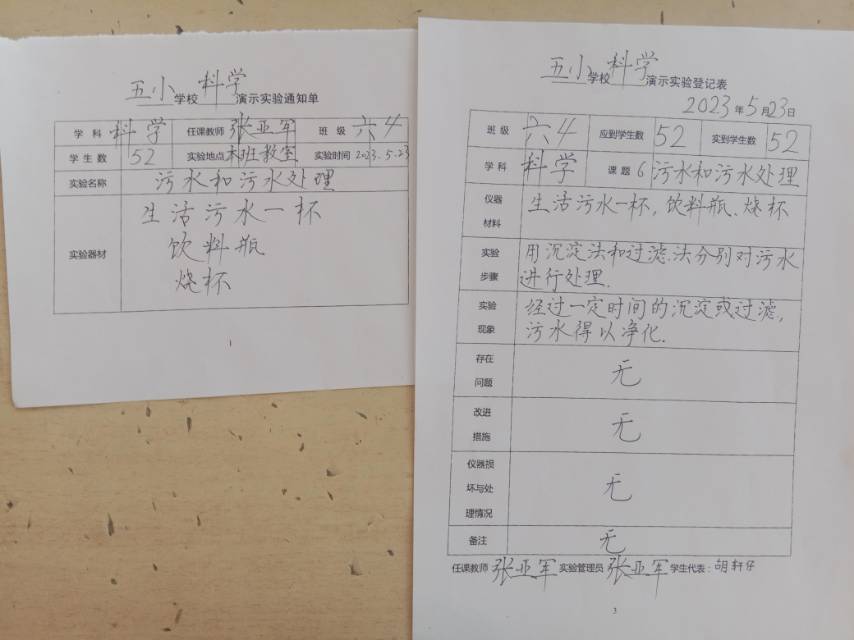 五小学校 科学 演示实验通知单
学科 科学 任课教师 张亚军 班级 六4
学生数 52 实验地点 本班教室 实验时间 2023.5.23
实验名称 污水和污水处理
实验器材 生活污水一杯
饮料瓶
烧杯
1
五小学校 科学 演示实验登记表
2023年5月23日
班级 六4 应到学生数 52 实到学生数 52
学科 科学 课题 6 污水和污水处理
仪器材料 生活污水一杯,饮料瓶、烧杯
实验步骤 用沉淀法和过滤法分别对污水
进行处理.
实验现象 经过一定时间的沉淀或过滤,
污水得以净化.
存在问题 无
改进措施 无
仪器损坏与处理情况 无
备注 无
任课教师 张亚军 实验管理员 张亚军 学生代表:胡轩仔
3